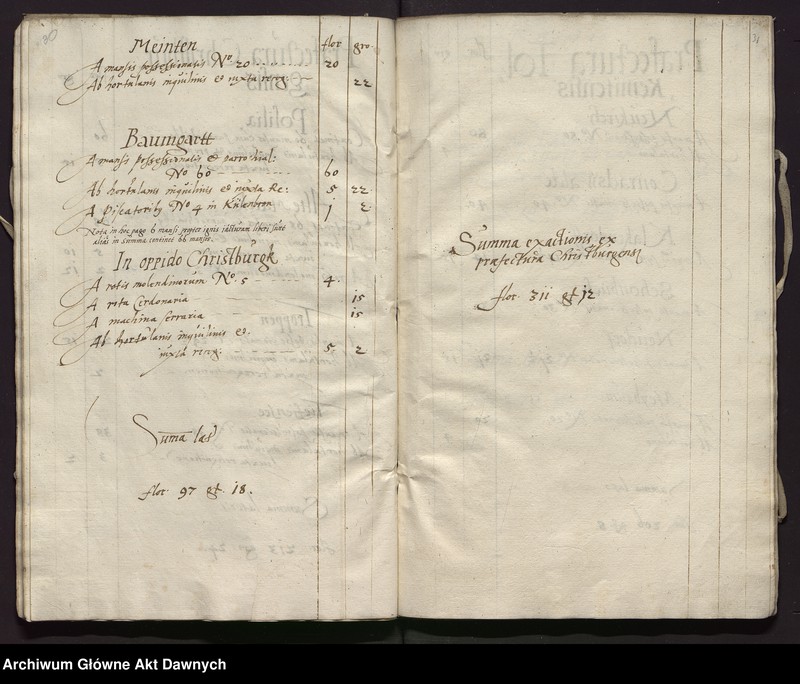 Meinten
flor gro.
A mansis possessionatis No. 20 20
Ab hortulanis inquilinis et iuxta reces: 22
Baumgartt
A mansis possessionatis et parrochial:
No 60 60
Ab hortulanis inquilinis et iuxta Re: 5 22
A piscatorib9 No 4 in Külenbron 1 2
Nota in hoc pago 6 mansi propter ignis iacturam liberi sunt
alias in summa continet 66 mansos.
In oppido Christburgk
A rotis molendinorum No. 5 4.
A rota Cerdonaria 15
A machina serraria 15
Ab hortulanis inquilinis et
iuxta reces: 5 2
Summa
flor. 97 gr. 18.
31
Summa exactionis ex
praefectura Christburgensi
flor. 311 gr 12
Archiwum Główne Akt Dawnych